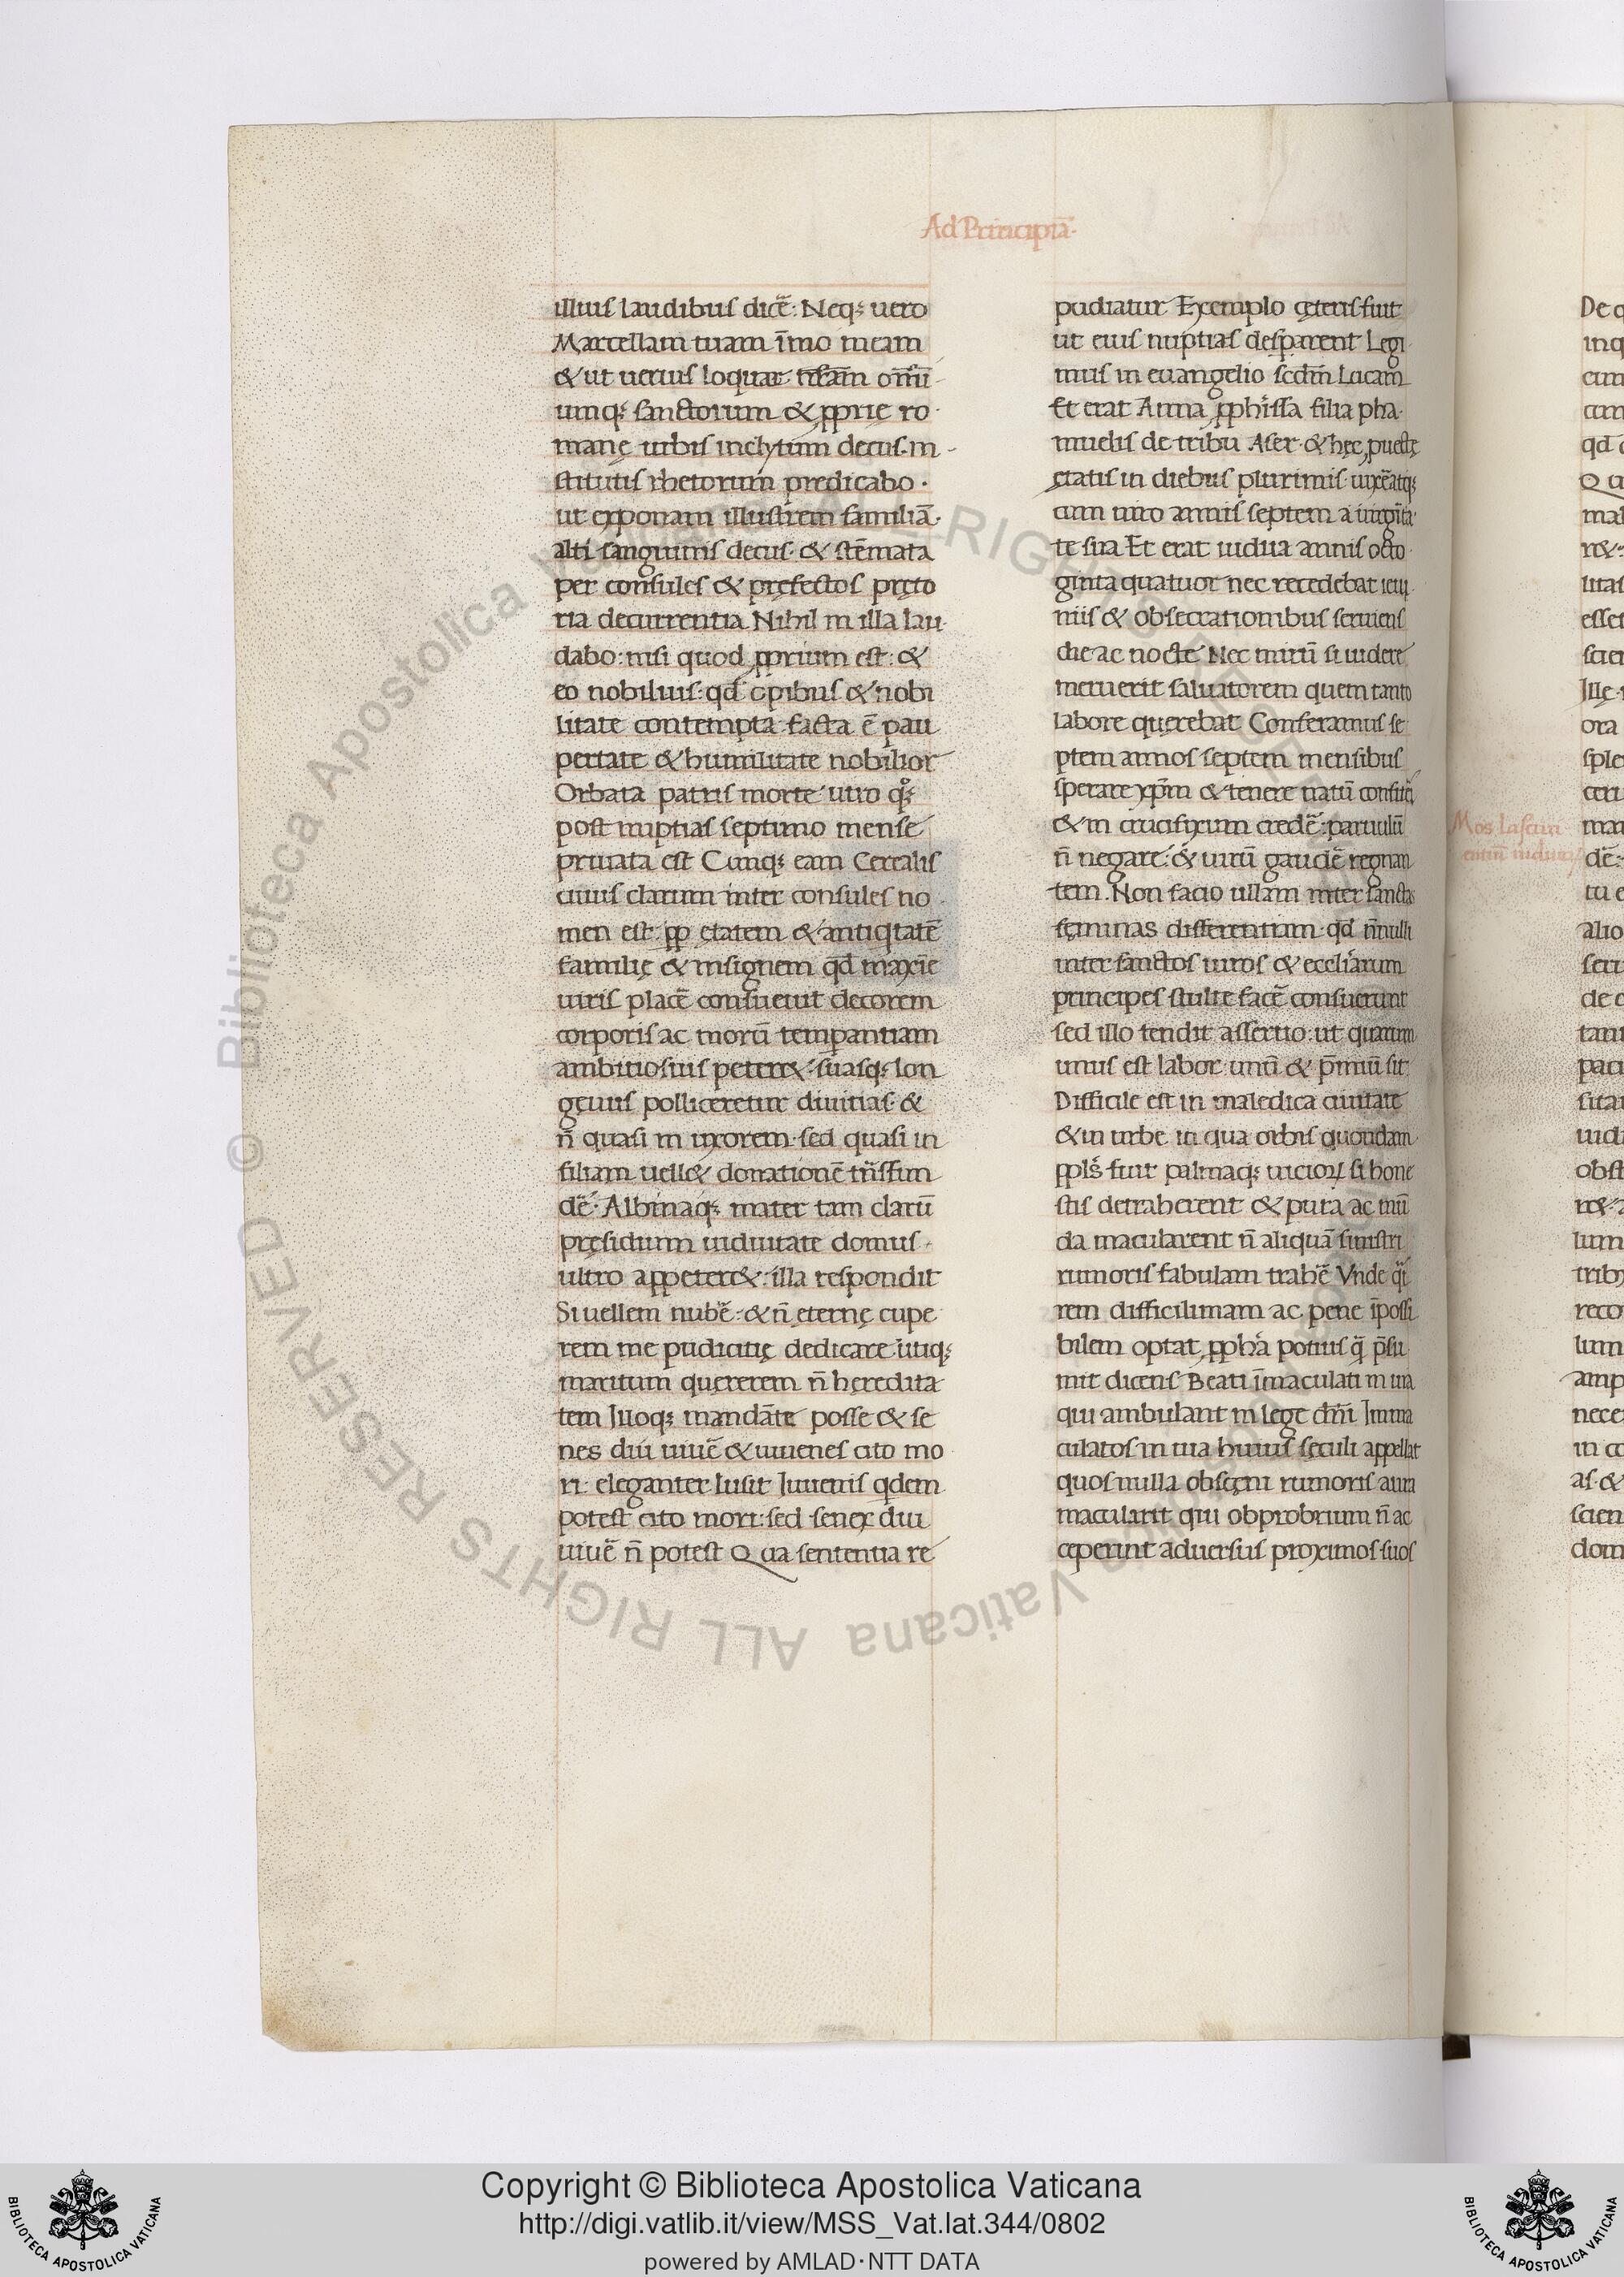 Ad Principiā·
illius laudibus dicē: Neqꝫ uero
Marcellam tuam īmo meam
& ut uerius loquar nr̄am om̄i
umqꝫ sanctorum & ꝓprie ro
manę urbis inclytum decus. in
stitutis rhetorum predicabo·
ut exponam illustrem familiā·
alti sanguinis decus· & stēmata
per consules & pręfectos pręto
ria decurrentia. Nihil in illa lau
dabo: nisi quod ꝓprium est: &
eo nobilius: qd̄ opibus & nobi
litate contempta facta ē pau
pertate & humilitate nobilior
Orbata patris morte uiro qͦꝫ
post nuptias septimo mense
priuata est Cumqꝫ eam Cerealis
cuius clarum inter consules no
men est: ꝓp ętatem & antiqtatē
familię & insignem qd̄ maxīe
uiris placē consueuit decorem
corporis ac morū temꝑantiam
ambitiosius peter&: suasqꝫ lon
gęuus polliceretur diuitias· &
n̄ quasi in uxorem· sed quasi in
filiam uell& donationē trāsfun
dē· Albinaqꝫ mater tam clarū
pręsidium uiduitate domus·
ultro appeter&: illa respondit
Si uellem nubē· & n̄ ęternę cupe
rem me pudicitię dedicare utiqꝫ
maritum quęrerem n̄ heredita
tem Illoqꝫ mandāte posse & se
nes diu uiuē & iuuenes cito mo
ri: eleganter lusit Iuuenis qdem
potest cito mori: sed senex diu
uiuē n̄ potest Qua sententia re
pudiatur Exemplo cęteris fuit
ut eius nuptias desꝑarent Legi
mus in euangelio scdm̄ Lucam
Et erat Anna ꝓphissa filia pha·
nuelis de tribu Aser· & hęc ꝓuectę
ętatis in diebus plurimis· uixēatqꝫ
cum uiro annis septem a uirgīta
te sua Et erat uidua annis octo
ginta quatuor nec recedebat ieiu
niis & obsecrationibus seruiens
die ac nocte Nec mirū si uidere
meruerit saluatorem quem tanto
labore querebat Conferamus se
ptem annos septem mensibus
sperare xp̄m & tenere natū confitēi
& in crucifixum credē: paruulū
n̄ negare: & uirū gaudē regnan
tem. Non facio ullam inter sanctas
fęminas differentiam· qd̄ n̄nulli
inter sanctos uiros & eccliarum
principes stulte facē consuerunt
sed illo tendit assertio: ut quarum
unus est labor unū & p̄miū sit
Difficile est in maledica ciuitate
& in urbe in qua orbis quondam
ppls̄ fuit palmaqꝫ uicioꝝ si hone
stis detraherent & pura ac mū
da macularent n̄ aliquā sinistri
rumoris fabulam trahē Vnde qi
rem difficilimam ac pene īpossi
bilem optat ꝓpha potius q̄ p̄su
mit dicens Beati īmaculati in uia
qui ambulant in lege dn̄i Imma
culatos in uia huius sęculi appellat
quos nulla obscęni rumoris aura
macularit qui obprobrium n̄ ac
ceperint aduersus proximos suos
Mos lasciui
entiū uiduaꝝ